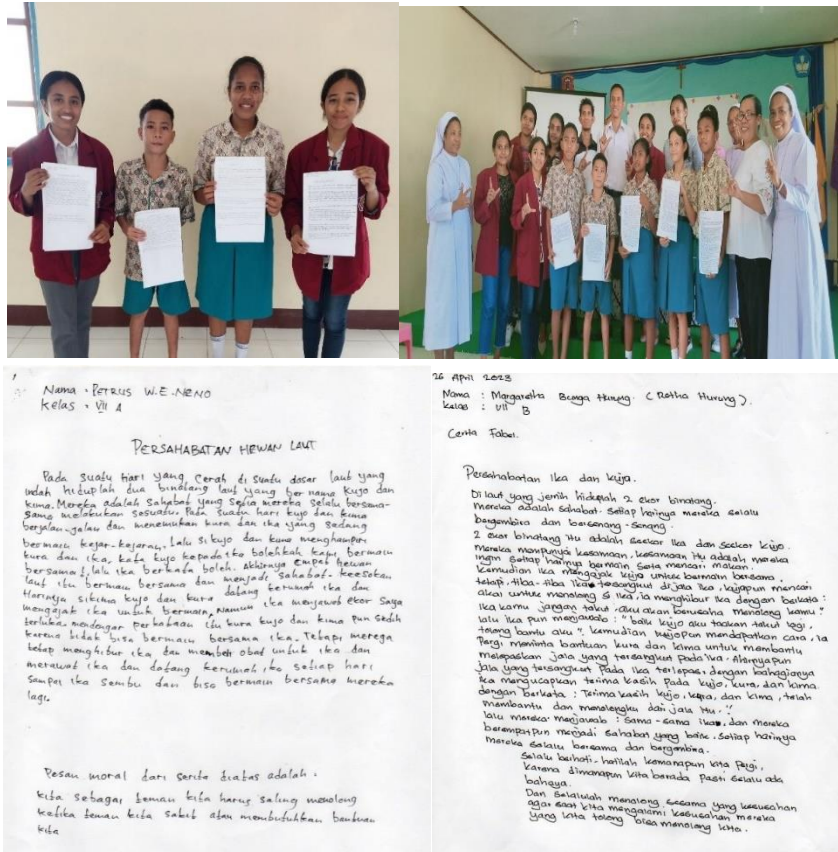 Nama : PETRUS W.E. NENO
Kelas : VII A
PERSAHABATAN HEWAN LAUT
Pada suatu Hari yang cerah di suatu dasar laut yang
indah hiduplah dua binatang laut yang ber nama kujo dan
kima. Mereka adalah sahabat yang setia mereka selalu bersama-
sama melakukan sesuatu. Pada suatu hari kujo dan kima
berjalan-jalan dan menemukan kura dan ika yang sedang
bermain kejar-kejaran. Lalu si kujo dan kima menghampiri
kura dan ika, kata kujo kepada ika bolehkah kami bermain
bersama?, lalu ika berkata boleh. Akhirnya empat hewan
laut itu bermain bersama dan menjadi sahabat. keesokan
Harinya sikima kujo dan kura datang kerumah ika dan
mengajak ika untuk bermain, Namun ika menjawab ekor saya
terluka. mendengar perkataan itu kura kujo dan kima pun sedih
karena tidak bisa bermain bersama ika. Tetapi merega
tetap menghibur ika dan memberi obat untuk ika dan
merawat ika dan datang kerumah ika setiap hari
sampai ika sembu dan bisa bermain bersama mereka
lagi.
Pesan moral dari serita diatas adalah.
kita sebagai teman kita harus saling menolong
ketika teman kita sakit atau membutuhkan bantuan
kita
26 April 2023
Nama : Margaretha Bunga Hurung. (Retha Hurung).
kelas : VII B
Cerita Fabel.
Persahabatan Ika dan kujo.
Di laut yang jernih hiduplah 2 ekor binatang.
mereka adalah sahabat. setiap harinya mereka selalu
bergembira dan bersenang-senang.
2 ekor binatang itu adalah seekor Ika dan seekor kujo.
mereka mempunyai kesamaan, kesamaan itu adalah mereka
ingin setiap harinya bermain serta mencari makan.
kemudian ika mengajak kujo untuk bermain bersama,
tetapi, tiba-tiba ika tersangkut di jala ika, kujopun mencari
akal untuk menolong si ika, ia menghibur ika dengan berkata :
"Ika kamu jangan takut aku akan berusaha menolong kamu".
lalu ika pun menjawab : "baik kujo aku taakan takut lagi,
tolong bantu aku". kemudian kujopun mendapatkan cara, ia
pergi meminta bantuan kura dan kima untuk membantu
melepaskan jala yang tersangkut pada ika. Akhirnyapun
jala yang tersangkut pada ika terlepas, dengan bahagianya
ika mengucapkan terima kasih pada kujo, kura, dan kima.
dengan berkata : Terima kasih kujo, kura, dan kima, telah
membantu dan menolongku dari jala itu."
lalu mereka menjawab : sama-sama ika, dan mereka
berempatpun menjadi sahabat yang baik. setiap harinya
mereka selalu bersama dan bergembira.
selalu berhati-hatilah kemanapun kita pergi,
karena dimanapun kita berada pasti selalu ada
bahaya.
Dan selalulah menolong sesama yang kesusahan
agar saat kita mengalami kesusahan mereka
yang kita tolong bisa menolong kita.